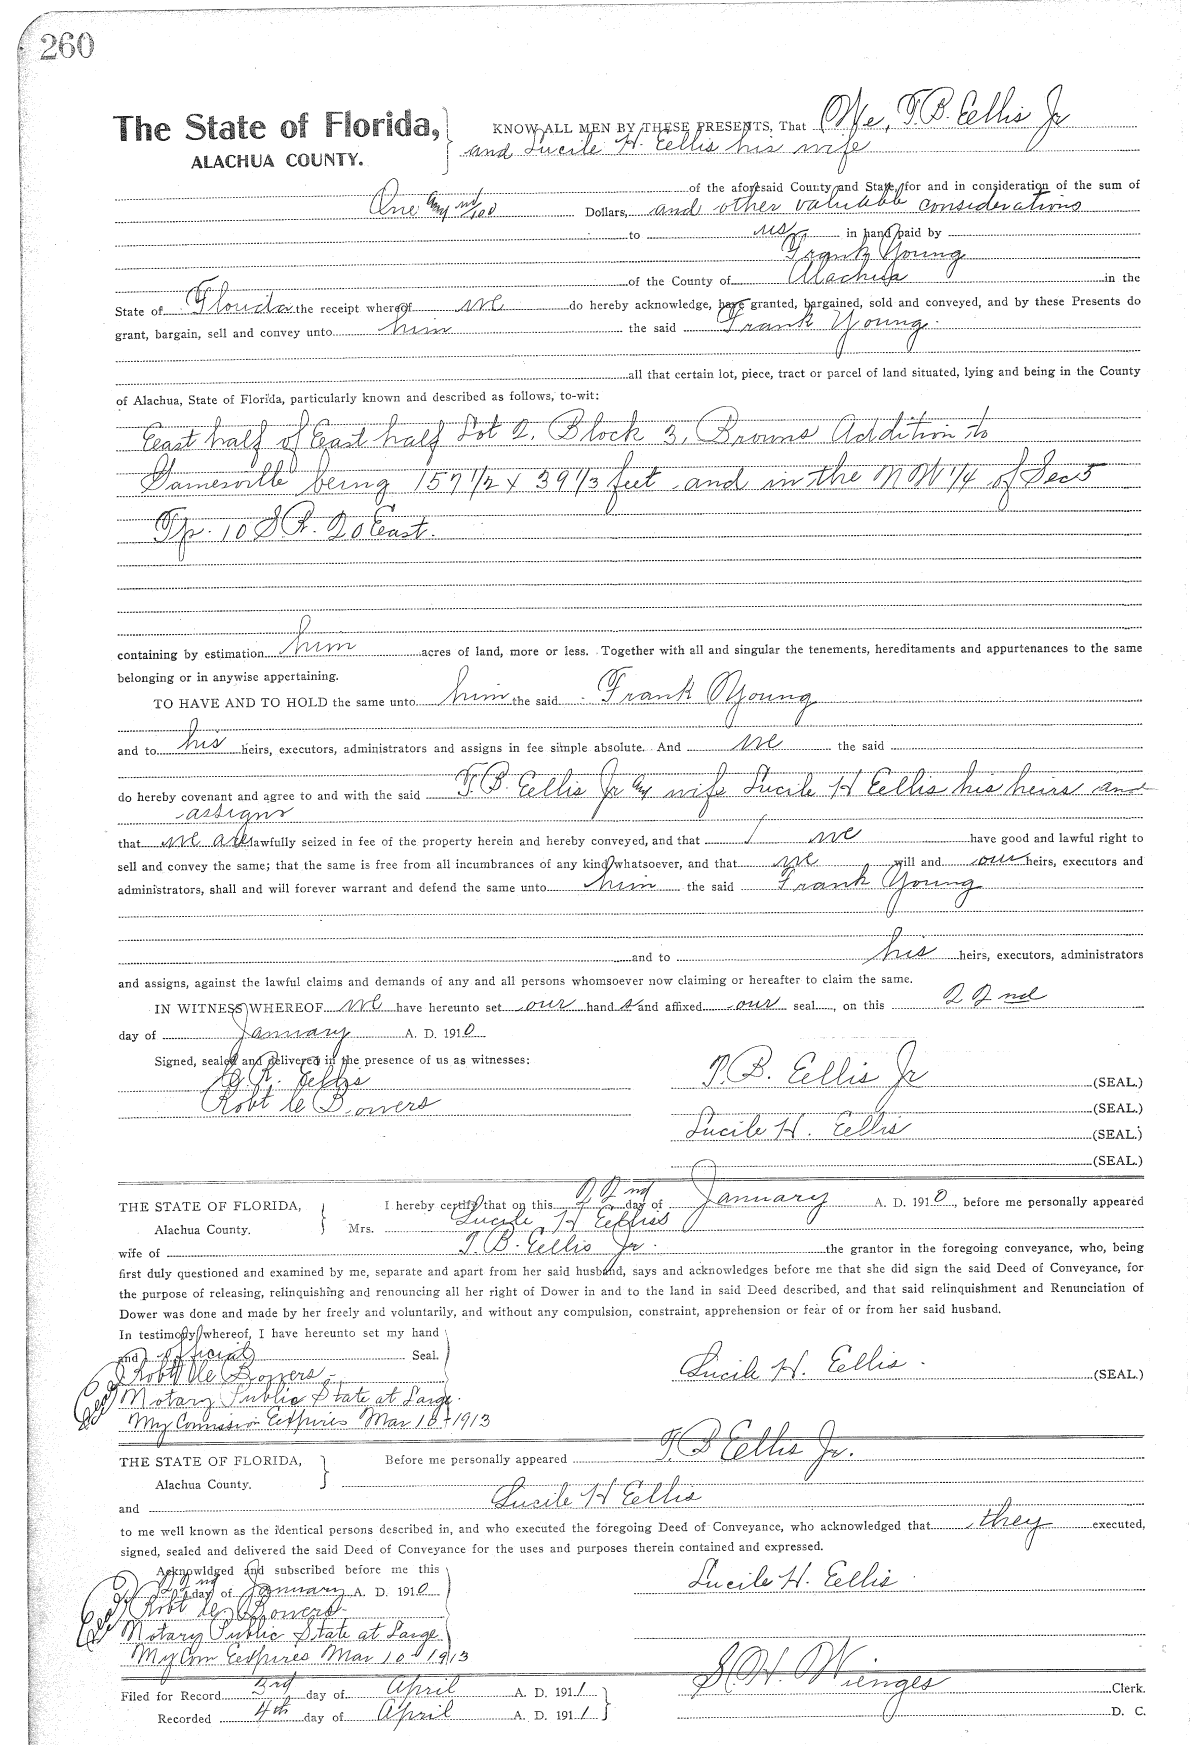 260
The State of Florida, KNOW ALL MEN BY THESE PRESENTS, That We, T. B. Ellis Jr
ALACHUA COUNTY. and Lucile H. Ellis his wife
of the aforesaid County and State, for and in consideration of the sum of
One and no/100 Dollars, and other valuable considerations
to us in hand paid by
Frank Young
of the County of Alachua in the
State of Florida the receipt whereof we do hereby acknowledge, have granted, bargained, sold and conveyed, and by these Presents do
grant, bargain, sell and convey unto him the said Frank Young.
all that certain lot, piece, tract or parcel of land situated, lying and being in the County
of Alachua, State of Florida, particularly known and described as follows, to-wit:
East half of East half Lot 2, Block 3, Browns Addition to
Gainesville being 157 1/2 x 39 1/3 feet and in the NW 1/4 of Sec 5
Tp. 10 S R. 20 East.
containing by estimation him acres of land, more or less. Together with all and singular the tenements, hereditaments and appurtenances to the same
belonging or in anywise appertaining.
TO HAVE AND TO HOLD the same unto him the said Frank Young
and to his heirs, executors, administrators and assigns in fee simple absolute. And we the said
do hereby covenant and agree to and with the said T. B. Ellis Jr and wife Lucile H Ellis his heirs and
assigns
that we are lawfully seized in fee of the property herein and hereby conveyed, and that we have good and lawful right to
sell and convey the same; that the same is free from all incumbrances of any kind whatsoever, and that we will and our heirs, executors and
administrators, shall and will forever warrant and defend the same unto him the said Frank Young
and to his heirs, executors, administrators
and assigns, against the lawful claims and demands of any and all persons whomsoever now claiming or hereafter to claim the same.
IN WITNESS WHEREOF we have hereunto set our hand s and affixed our seal, on this 22nd
day of January A. D. 1910
Signed, sealed and delivered in the presence of us as witnesses:
G. R. Ellis T. B. Ellis Jr (SEAL.)
Robt Bowers (SEAL.)
Lucile H. Ellis (SEAL.)
(SEAL.)
THE STATE OF FLORIDA, I hereby certify that on this 22nd day of January A. D. 1910, before me personally appeared
Alachua County. Mrs. Lucile H Ellis
wife of T. B. Ellis Jr. the grantor in the foregoing conveyance, who, being
first duly questioned and examined by me, separate and apart from her said husband, says and acknowledges before me that she did sign the said Deed of Conveyance, for
the purpose of releasing, relinquishing and renouncing all her right of Dower in and to the land in said Deed described, and that said relinquishment and Renunciation of
Dower was done and made by her freely and voluntarily, and without any compulsion, constraint, apprehension or fear of or from her said husband.
In testimony whereof, I have hereunto set my hand
and official Seal.
Robt Bowers Lucile H. Ellis. (SEAL.)
Notary Public State at Large.
My Commission Expires Mar 10-1913
THE STATE OF FLORIDA, Before me personally appeared T. B Ellis Jr.
Alachua County.
and Lucile H Ellis
to me well known as the identical persons described in, and who executed the foregoing Deed of Conveyance, who acknowledged that they executed,
signed, sealed and delivered the said Deed of Conveyance for the uses and purposes therein contained and expressed.
Acknowldged and subscribed before me this
22nd day of January A. D. 1910 Lucile H. Ellis.
Robt Bowers
Notary Public State at Large
My Com Expires Mar 10-1913
Filed for Record 3rd day of April A. D. 1911 S. H. Wienges Clerk.
Recorded 4th day of April A. D. 1911 D. C.